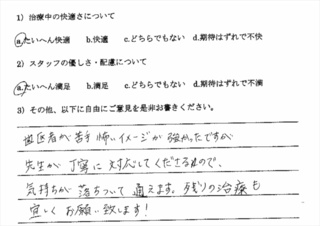 1）治療中の快適さについて
a.たいへん快適　b.快適　c.どちらでもない　d.期待はずれで不快
2）スタッフの優しさ・配慮について
a.たいへん満足　b.満足　c.どちらでもない　d.期待はずれで不満
3）その他、以下に自由にご意見を是非お書きください。
歯医者が苦手 怖いイメージが強かったですが
先生が丁寧に対応してくださるので、
気持ちが落ちついて通えます。残りの治療も
宜しくお願い致します！